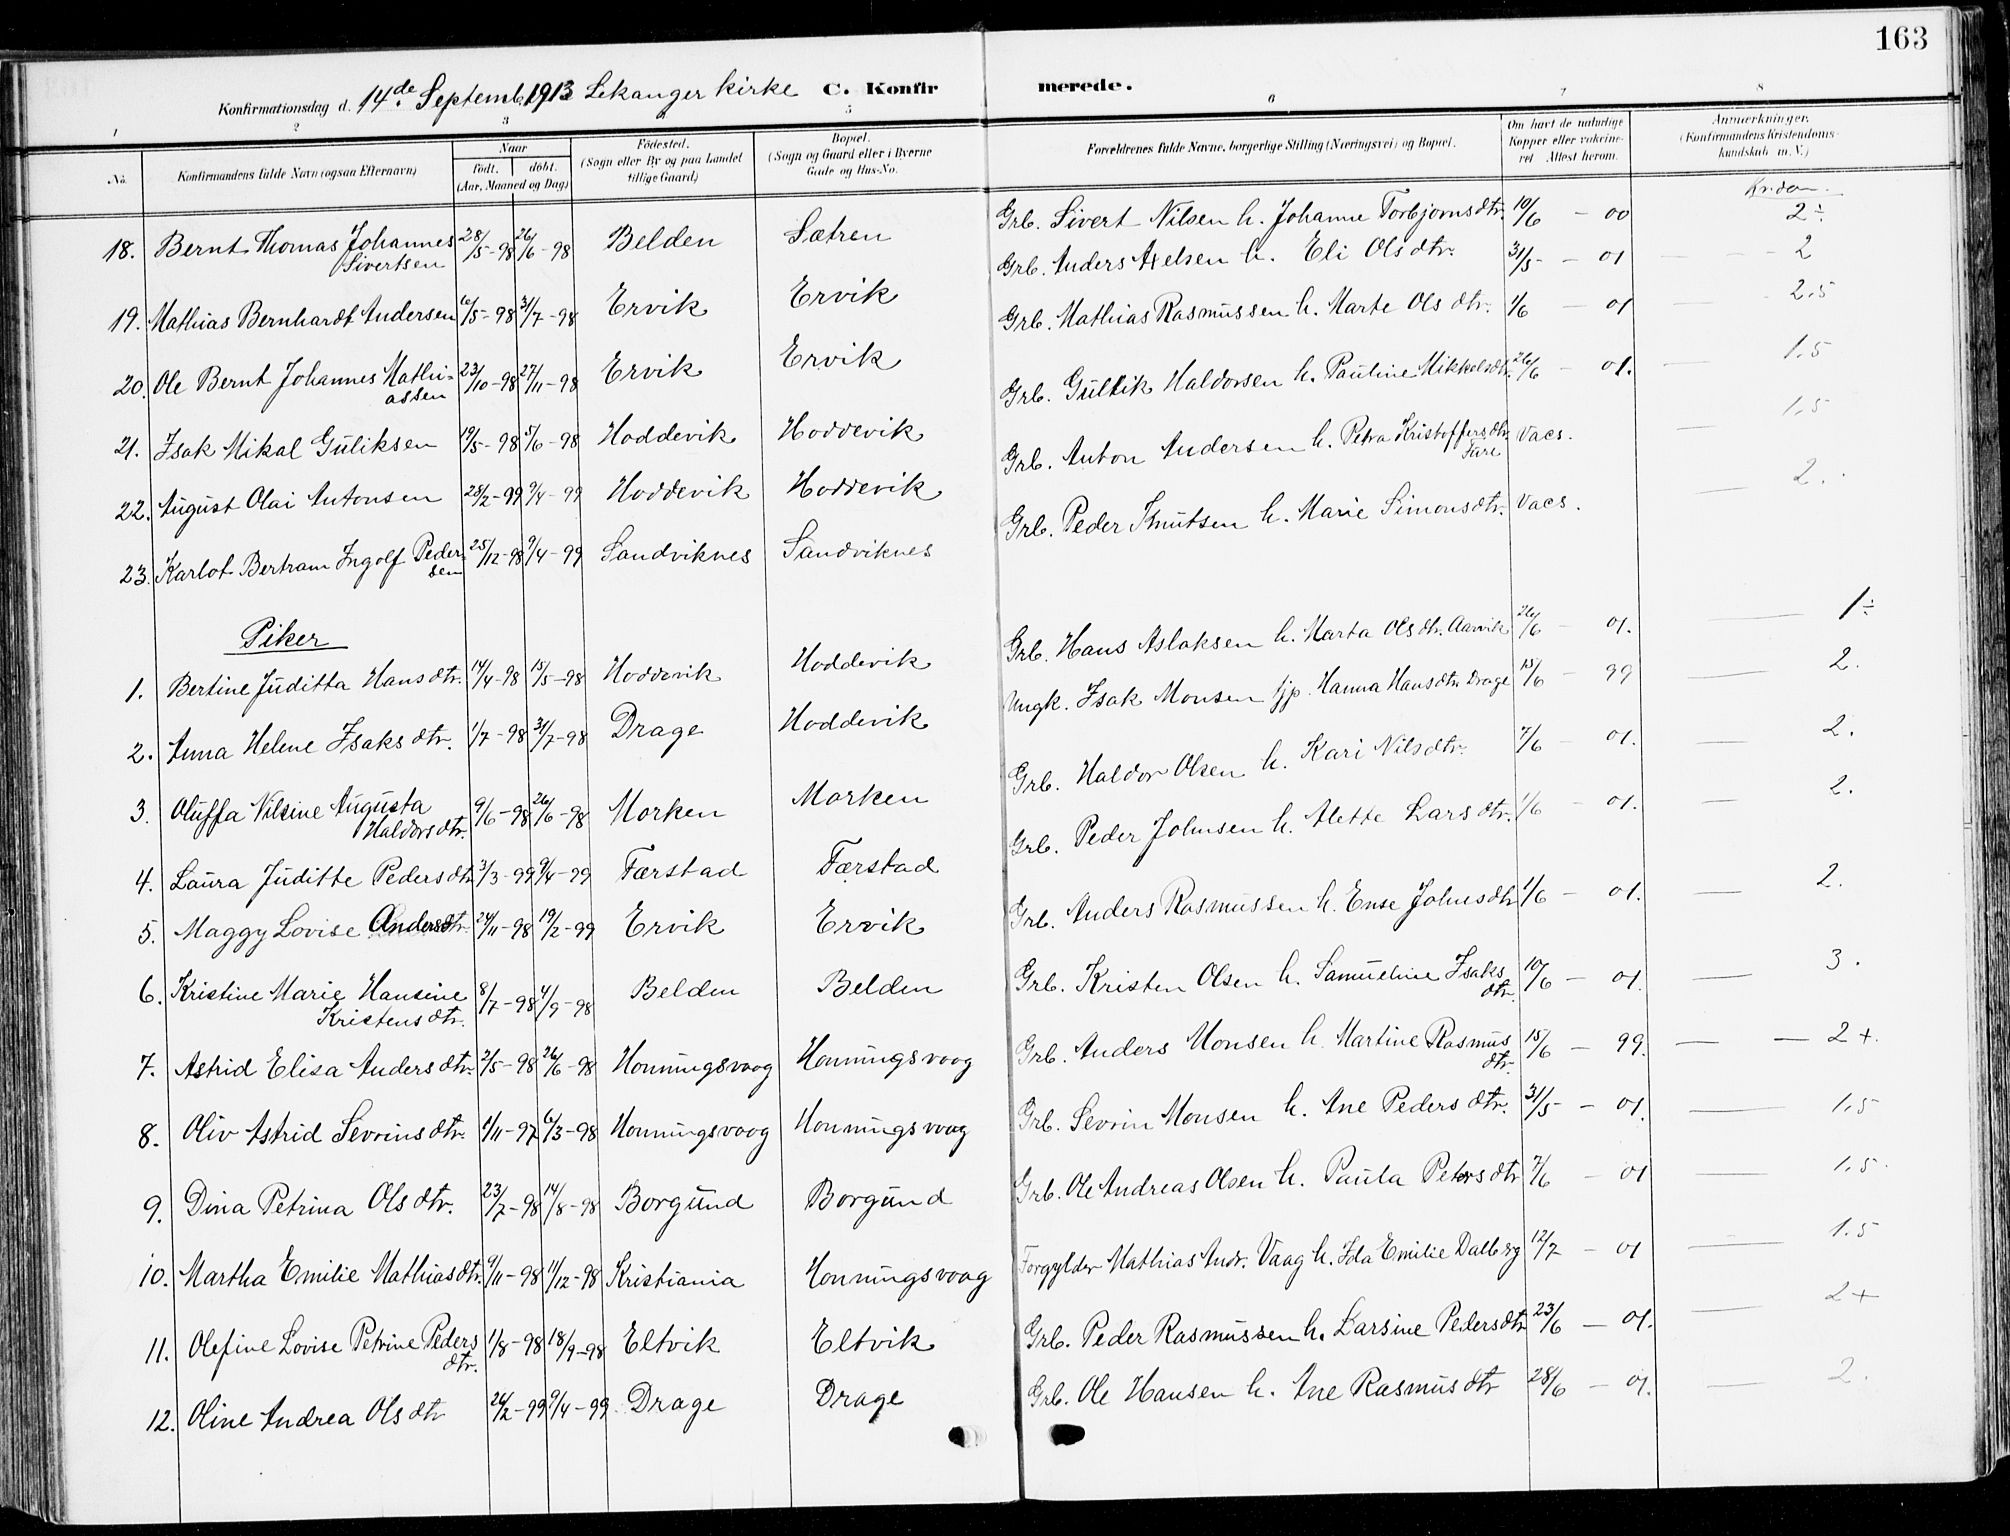 163
Konfirmationsdag d. 14de Septemb. 1913 Lekanger kirke C. Konfirmerede.
1 2 3 5 6 7 8
No. Konfirmandens fulde Navn (ogsaa Efternavn) Naar født. døbt. (Aar, Maaned og Dag) Fødested. (Sogn eller By og paa Landet tillige Gaard) Bopæl. (Sogn og Gaard eller i Byerne Gade og Hus-No. Forældrenes fulde Navne, borgerlige Stilling (Næringsvei) og Bopæl. Om havt de naturlige Kopper eller vakcineret. Attest herom. Anmærkninger. (Konfirmandens Kristendomskundskab m. V.)
Kr.dom.
18. Bernt Thomas Johannes Sivertsen 28/5-98 26/6-98 Belden Sætren Grb. Sivert Nilsen h. Johanne Torbjørnsdtr. 10/6 - 00 2÷
19. Mathias Bernhardt Andersen 10/5-98 31/7-98 Ervik Ervik Grb. Anders Axelsen h. Eli Olsdtr. 31/5 - 01 2
20. Ole Bernt Johannes Mathiassen 23/10-98 27/11-98 Ervik Ervik Grb. Mathias Rasmussen h. Marte Olsdtr. 1/6 - 01 2.5
21. Isak Mikal Guliksen 19/5-98 5/6-98 Hoddevik Hoddevik Grb. Gullik Haldorsen h. Pauline Mikkelsdtr. 26/6 - 01. 1.5
22. August Olai Antonsen 28/2-99 9/4-99 Hoddevik Hoddevik Grb. Anton Andersen h. Petra Kristoffersdtr. Fure Vacs. 1.5
23. Karlot Bertram Ingolf Pedersen 25/12-98 9/4-99 Sandviknes Sandviknes Grb. Peder Knutsen h. Marie Simonsdtr. Vacs. 2.
Piker
1. Bertine Juditta Hansdtr. 14/4-98 15/5-98 Hoddevik Hoddevik Grb. Hans Aslaksen h. Marta Olsdtr. Aarvik 26/6 - 01. 1÷
2. Anna Helene Isaksdtr. 1/7-98 31/7-98 Drage Hoddevik Ungk. Isak Monsen pp. Hanna Hansdtr. Drage 15/6 - 99 2.
3. Oluffa Nilsine Augusta Haldorsdtr. 9/6-98 26/6-98 Morken Morken Grb. Haldor Olsen h. Kari Nilsdtr. 7/6 - 01. 2.
4. Laura Juditte Pedersdtr. 3/3-99 9/4-99 Færstad Færstad Grb. Peder Johnsen h. Alette Larsdtr. 1/6 - 01. 2.
5. Maggy Lovise Andersdtr. 24/11-98 19/2-99 Ervik Ervik Grb. Anders Rasmussen h. Ense Johnsdtr 1/6 - 01. 2.
6. Kristine Marie Hansine Kristensdtr. 8/7-98 4/9-98 Belden Belden Grb. Kristen Olsen h. Samueline Isaksdtr. 10/6 - 01. 3.
7. Astrid Elisa Andersdtr. 2/5-98 26/6-98 Honningsvaag Honningsvaag Grb. Anders Monsen h. Martine Rasmusdtr. 15/6 - 99. 2+.
8. Oliv Astrid Sevrinsdtr. 1/11-97 6/3-98 Honningsvaag Honningsvaag Grb. Sevrin Monsen h. Ane Pedersdtr. 31/5 - 01. 1.5
9. Dina Petrina Olsdtr. 23/7-98 14/8-98 Borgund Borgund Grb. Ole Andreas Olsen h. Paula Petersdtr 7/6 - 01 1.5
10. Martha Emilie Mathiasdtr. 9/11-98 11/12-98 Kristiania Honningsvaag Forgylder Mathias Andr. Vaag h. Ida Emilie Dalberg 12/7 - 01 1.5
11. Olefine Lovise Petrine Pedersdtr. 1/8-98 18/9-98 Eltvik Eltvik Grb. Peder Rasmussen h. Larsine Pedersdtr 23/6 - 01. 2+
12. Oline Andrea Olsdtr 26/2-99 9/4-99 Drage Drage Grb. Ole Hansen h. Ane Rasmusdtr 28/6 - 01. 2.